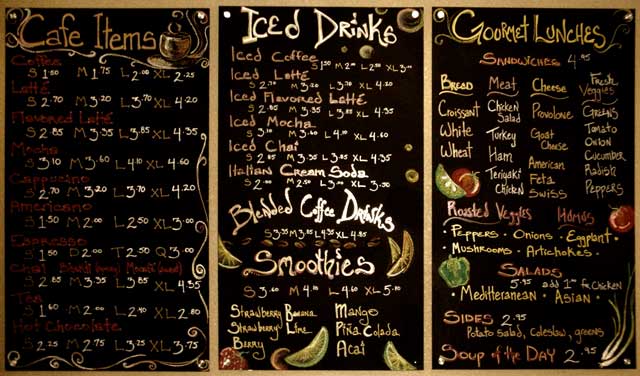 Cafe Items
Coffee
S 1.50 M 1.75 L 2.00 XL 2.25
Latté
S 2.70 M 3.20 L 3.70 XL 4.20
Flavored Latté
S 2.85 M 3.35 L 3.85 XL 4.35
Mocha
S 3.10 M 3.60 L 4.10 XL 4.60
Cappuccino
S 2.70 M 3.20 L 3.70 XL 4.20
Americano
S 1.50 M 2.00 L 2.50 XL 3.00
Espresso
S 1.50 D 2.00 T 2.50 Q 3.00
Chai
S 2.85 M 3.35 L 3.85 XL 4.35
Tea
S 1.60 M 2.00 L 2.40 XL 2.80
Hot Chocolate
S 2.25 M 2.75 L 3.25 XL 3.75
Iced Drinks
Iced Coffee
S 1.50 M 2.00 L 2.50 XL 3.00
Iced Latté
S 2.70 M 3.20 L 3.70 XL 4.20
Iced Flavored Latté
S 2.85 M 3.35 L 3.85 XL 4.35
Iced Mocha
S 3.10 M 3.60 L 4.10 XL 4.60
Iced Chai
S 2.85 M 3.35 L 3.85 XL 4.35
Italian Cream Soda
S 2.00 M 2.50 L 3.00 XL 3.50
Blended Coffee Drinks
S 3.35 M 3.85 L 4.35 XL 4.85
Smoothies
S 3.60 M 4.10 L 4.60 XL 5.10
Strawberry Banana
Strawberry Lime
Berry
Mango
Piña Colada
Acai
Gourmet Lunches
Sandwiches 4.95
Bread
Croissant
White
Wheat
Meat
Chicken
Salad
Turkey
Ham
Teriyaki
Chicken
Cheese
Provolone
Goat
Cheese
American
Feta
Swiss
Fresh
Veggies
Greens
Tomato
Onion
Cucumber
Radish
Peppers
Roasted Veggies Humus
• Peppers • Onions • Eggplant •
• Mushrooms • Artichokes •
Salads
5.95 add 1.00 for Chicken
• Mediterranean • Asian •
Sides 2.95
Potato Salad, Coleslaw, greens
Soup of the Day 2.95